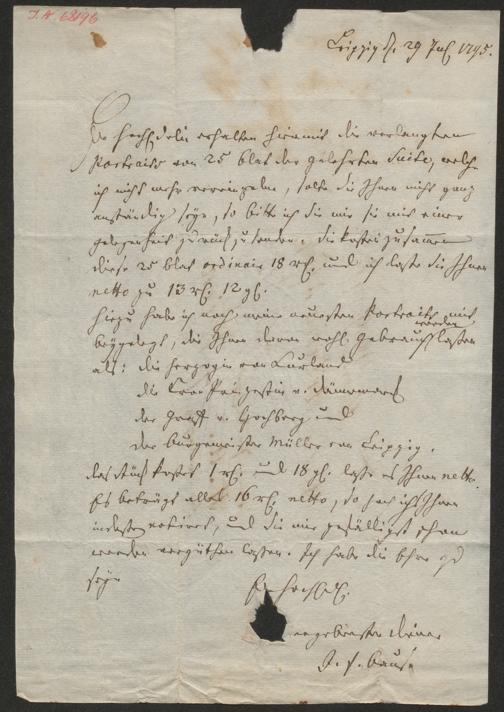 I. N. 68196
Leipzig d. 29 Jul 1795.
Ew HochEdeln erhalten hiermit die verlangten
Portraits von 25 blat der gelehrten Suite, welche
ich nicht mehr vereinzelne, solte sie Ihnen nicht ganz
anständig seyn, so bitte ich sie mir sie mit einer
gelegenheit zurück zu senden. die kosten zusammen
diese 25 blat ordinair 18 rh. und ich laße sie Ihnen
netto zu 13 rh. 12 gl.
hiezu habe ich noch meine neuesten Portraits mit
beygelegt, die Ihnen davon wohl gebrauch laßen
werden
als: die herzogin von Curland
die Cron Prinzeßin v. dännemark
der Graff v. Hochberg und
der burgemeister Müller von Leipzig.
das stück kostet 1 rh. und 18 gl. laße es Ihnen netto.
Es beträgt alles 16 rh. netto, so ich Ihnen
indeßen notiret, und Sie mir gefälligst
werden vergüthen laßen. Ich habe die Ehre zu
seyn
Ew HochEdl.
ergebenster diener
J. F. Bause